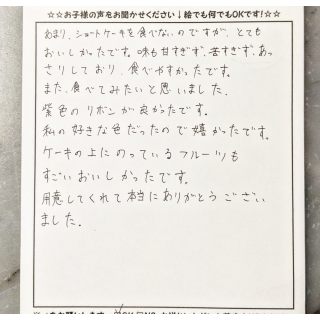 ☆☆お子様の声をお聞かせください↓絵でも何でもOKです!☆☆
あまり、ショートケーキを食べないのですが、とても
おいしかったです。味も甘すぎず、苦すぎず、あっ
さりしており、食べやすかったです。
また、食べてみたいと思いました。
紫色のリボンが良かったです。
私の好きな色だったので嬉かったです。
ケーキの上にのっているフルーツも
すごいおいしかったです。
用意してくれて本当にありがとうござい
ました。